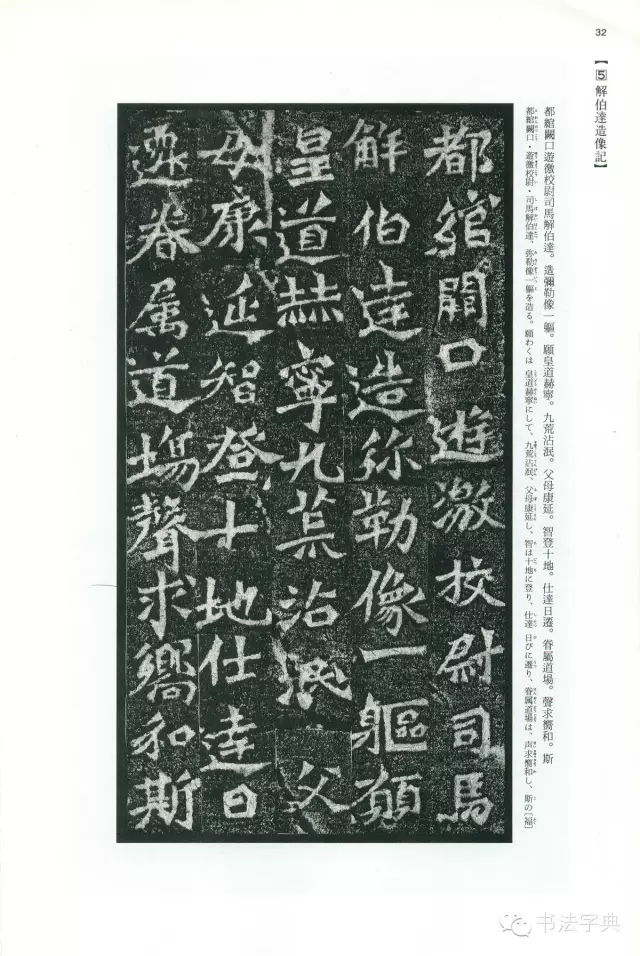 32
【5 解伯達造像記】
都綰闕口遊徼校尉司馬解伯達。造彌勒像一軀。願皇道赫寧。九荒沾泯。父母康延。智登十地。仕達日遷。眷屬道場。聲求嚮和。斯
都綰闕口・遊徼校尉・司馬解伯達、弥勒像一軀を造る。願わくは 皇道赫寧にして、九荒沾泯、父母康延し、智は十地に登り、仕達 日びに遷り、眷属道場は、声求嚮和し、斯の〔福〕
都綰闕口遊激校尉司馬
解伯達造弥勒像一軀願
皇道赫寧九荒沾泯父
母康延智登十地仕達日
遷眷属道場聲求嚮和斯
书法字典